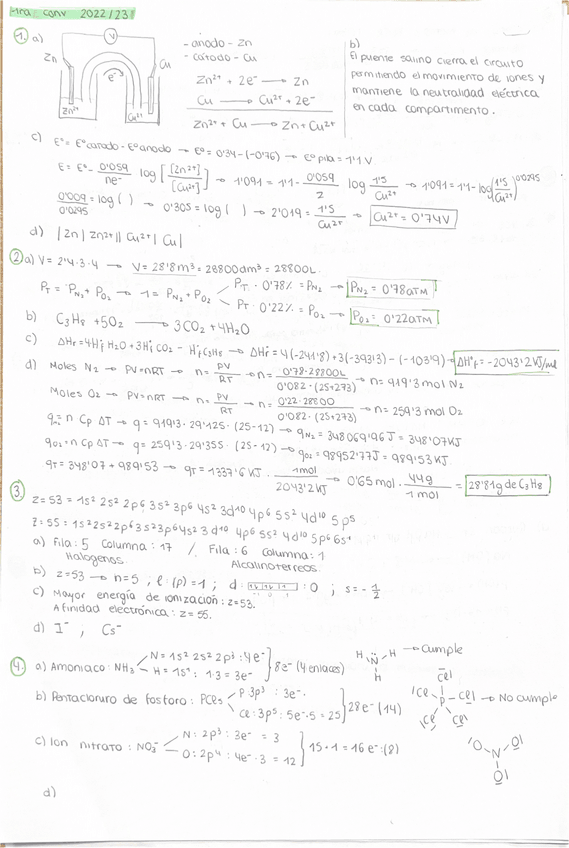 Mra. conv 2022/23
1. a)
V
Zn
Cu
e⁻
Zn²⁺
Cu²⁺
- anodo - Zn
- catodo - Cu
Zn²⁺ + 2e⁻ → Zn
Cu → Cu²⁺ + 2e⁻
Zn²⁺ + Cu → Zn + Cu²⁺
b)
El puente salino cierra el circuito
permitiendo el movimiento de iones y
mantiene la neutralidad eléctrica
en cada compartimento.
c) E° = E°catodo - E°anodo → E° = 0'34 - (-0'76) → E° pila = 1'1 V
E = E° - 0'059/ne⁻ log [[Zn²⁺]/[Cu²⁺]] → 1'091 = 1'1 - 0'059/2 log 1'5/Cu²⁺ → 1'091 = 1'1 - log(1'5/Cu²⁺)^0'0295
0'009/0'0295 = log ( ) → 0'305 = log ( ) → 2'019 = 1'5/Cu²⁺ → Cu²⁺ = 0'74V
d) | Zn | Zn²⁺ || Cu²⁺ | Cu |
2. a) V = 2'4·3·4 → V = 28'8 m³ = 28800 dm³ = 28800 L.
P_T = P_N₂ + P_O₂ → 1 = P_N₂ + P_O₂
P_T · 0'78% = P_N₂ → P_N₂ = 0'78 atm
P_T · 0'22% = P_O₂ → P_O₂ = 0'22 atm
b) C₃H₈ + 5O₂ → 3CO₂ + 4H₂O
c) ΔH_f = 4H_f H₂O + 3H_f CO₂ - H_f C₃H₈ → ΔH_f = 4(-241'8) + 3(-393'3) - (-103'9) → ΔH°_f = -2043'2 KJ/mol
d) Moles N₂ → PV = nRT → n = PV/RT → n = 0'78·28800L/0'082·(25+273) → n = 919'3 mol N₂
Moles O₂ → PV = nRT → n = PV/RT → n = 0'22·28800/0'082·(25+273) → n = 259'3 mol O₂
q_N₂ = n Cp ΔT → q = 919'3·29'125·(25-12) → q_N₂ = 348069'96 J = 348'07 KJ
q_O₂ = n Cp ΔT → q = 259'3·29'355·(25-12) → q_O₂ = 98952'77 J = 989'53 KJ
q_T = 348'07 + 989'53 → q_T = 1337'6 KJ · 1mol/2043'2 KJ → 0'65 mol · 44g/1 mol = 28'81g de C₃H₈
3. Z = 53 = 1s² 2s² 2p⁶ 3s² 3p⁶ 4s² 3d¹⁰ 4p⁶ 5s² 4d¹⁰ 5p⁵
Z = 55 = 1s² 2s² 2p⁶ 3s² 3p⁶ 4s² 3d¹⁰ 4p⁶ 5s² 4d¹⁰ 5p⁶ 6s¹
a) Fila: 5 Columna: 17 / Fila: 6 Columna: 1
Halogenos. Alcalinoterreos.
b) Z = 53 → n = 5 ; l: (p) = 1 ; d: : 0 ; s = -1/2
c) Mayor energía de ionización: Z = 53.
Afinidad electrónica: Z = 55.
d) I⁻ ; Cs⁻
4. a) Amoniaco: NH₃
N = 1s² 2s² 2p³ : 4e⁻
H = 1s¹ : 1·3 = 3e⁻
8e⁻ (4 enlaces)
H N H
H
→ Cumple
b) Pentacloruro de fosforo: PCl₅
P 3p³ : 3e⁻.
Cl: 3p⁵: 5e⁻·5 = 25
28e⁻ (14)
Cl
Cl P Cl
Cl Cl
→ No cumple
c) Ion nitrato: NO₃⁻
N: 2p³: 3e⁻ = 3
O: 2p⁴: 4e⁻·3 = 12
15+1 = 16e⁻: (8)
O N O
O
d)